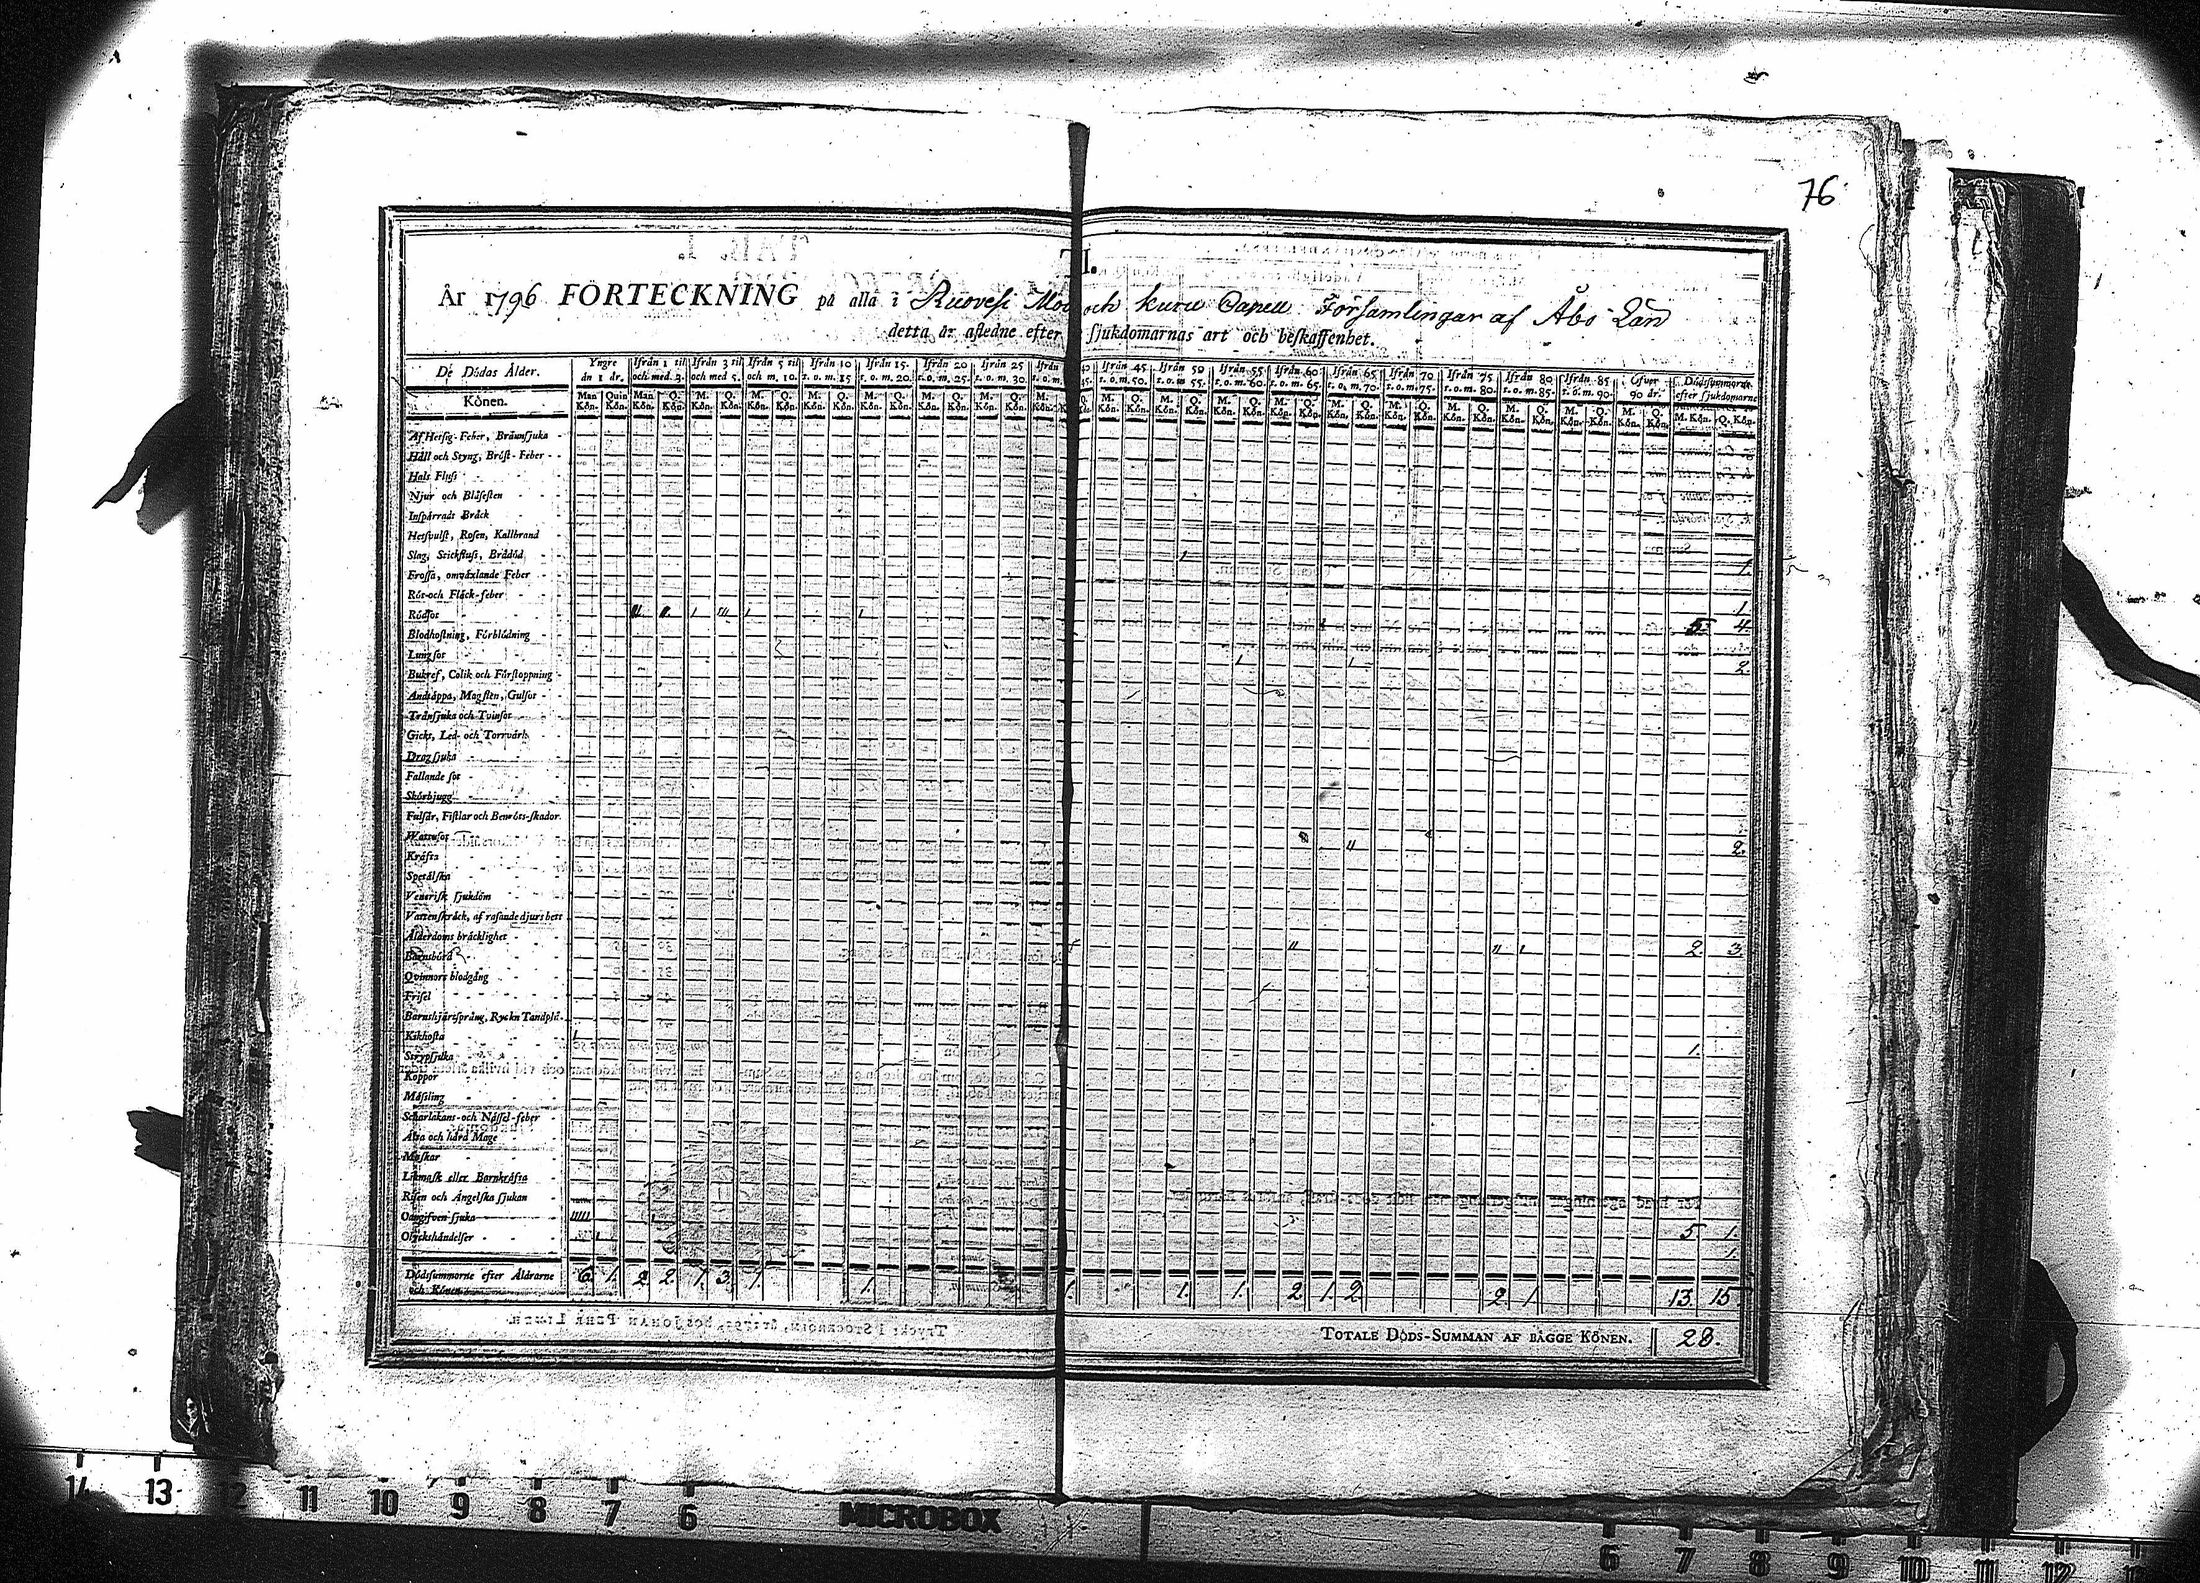 76
II.
År 1796 FÖRTECKNING på alla i Ruovesi och Kuru Capell Församlingar af Åbo Län
detta år afledne efter sjukdomarnas art och beskaffenhet.
De Dödas Ålder. Yngre än 1 år. Ifrån 1 til och med 3. Ifrån 3 til och med 5. Ifrån 5 til och m. 10. Ifrån 10 t. o. m. 15 Ifrån 15. t. o. m. 20. Ifrån 20 t. o. m. 25. Ifrån 25 t. o. m. 30. Ifrån Ifrån 45 t. o. m. 50. Ifrån 50 t. o. m 55. Ifrån 55 t. o. m. 60. Ifrån 60 t. o. m. 65. Ifrån 65 t. o. m. 70. Ifrån 70 t. o. m. 75. Ifrån 75 t. o. m. 80. Ifrån 80 t. o. m. 85. Ifrån 85 t. o. m. 90. Öfver 90 år. Dödssummorne efter sjukdomarne
Könen. Man Kön. Quin Kön. Man Kön. Q. Kön. M. Kön. Q. Kön. M. Kön. Q. Kön. M. Kön. Q. Kön. M. Kön. Q. Kön. M. Kön. Q. Kön. M. Kön. Q. Kön. M. Kön. Q. Kön.
Af Hetsig-Feber, Brännsjuka
Håll och Styng, Bröst-Feber
Hals Fluss
Njur och Blåsesten
Inspärradt Bråck
Hetsvulst, Rosen, Kallbrand
Slag, Stickfluss, Brådöd 1
Frossa, omväxlande Feber 1.
Röt-och Fläck-feber
Rödsot 11 11 1 111 1 1 1 5. 4.
Blodhostning, Förblödning
Lungsot 1 1 2.
Bukref, Colik och Förstoppning
Andtäppa, Magsten, Gulsot
Tränsjuka och Tvinsot
Gickt, Led- och Torrvärk
Dragsjuka
Fallande sot
Skörbjugg
Fulsår, Fistlar och Benröts-skador.
Wattusot 11 2.
Kräfta
Spetälska
Venerisk sjukdom
Vattenskräck, af rasande djurs bett
Ålderdoms bräcklighet 11 11 1 2. 3.
Barnsbörd
Qvinnors blodgång
Frisel
Barnshjärtsprång, Ryckn Tandplå.
Kikhosta 1 1.
Strypsjuka
Koppor
Mässling
Scharlakans-och Nässel-feber
Alta och hård Mage
Maskar
Likmask eller Barnkräfta
Risen och Ängelska sjukan
Oangifven sjuka 11111 5. 1.
Olyckshändelser 1 1.
Dödssummorne efter Åldrarne och Könen 6. 1. 2 2. 1. 3. 1. 1. 1. 1. 1. 2 1. 2. 2 1. 13. 15.
TOTALE DÖDS-SUMMAN AF BÄGGE KÖNEN. 28.
14 13 12 11 10 9 8 7 6 MICROBOX 6 7 8 9 10 11 12